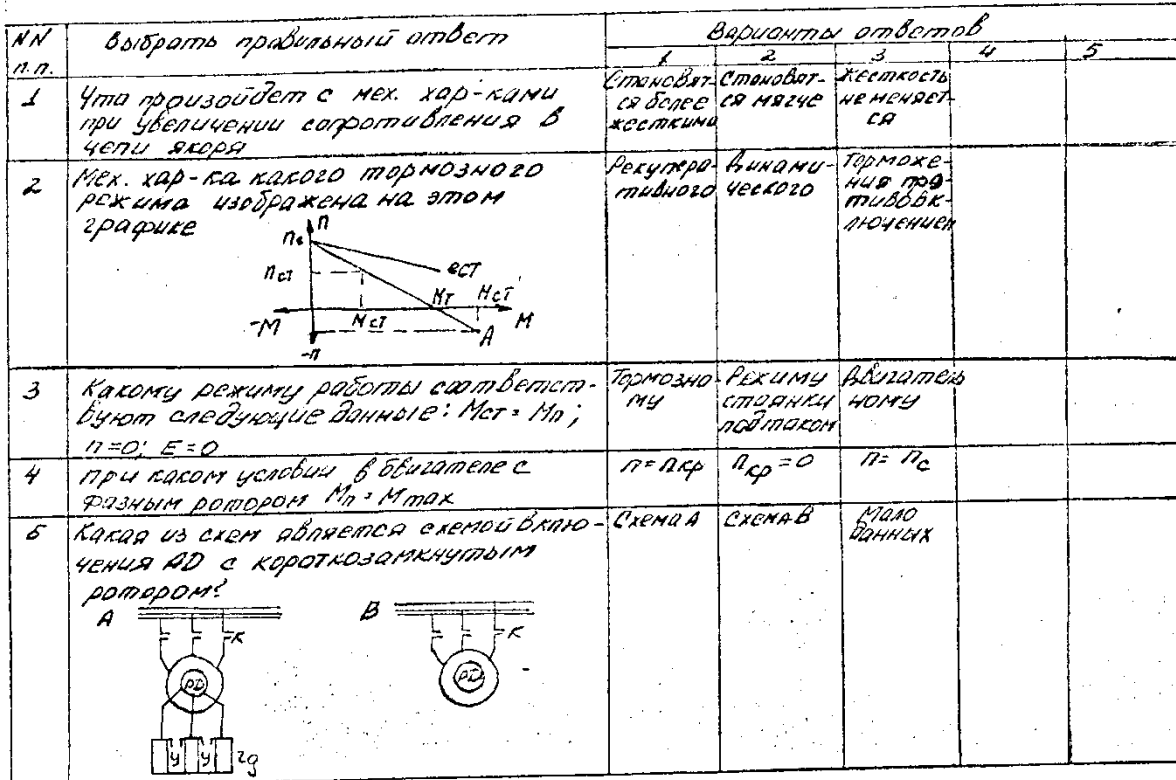 NN Выбрать правильный ответ Варианты ответов
п.п. 1 2 3 4 5
1 Что произойдет с мех. хар-ками
при увеличении сопротивления в
цепи якоря
Становят-
ся более
жесткими
Становят-
ся мягче
Жесткость
не меняет-
ся
2 Мех. хар-ка какого тормозного
режима изображена на этом
графике
Рекупера-
тивного
Динами-
ческого
Торможе-
ния про-
тивовк-
лючением
n
nо
nст
ест
Mт
Mст
-M
Mст
M
A
-n
3 Какому режиму работы соответст-
вуют следующие данные: Mст = Mп;
n=0; E=0
Тормозно-
му
Режиму
стоянки
под током
Двигатель
ному
4 При каком условии в двигателе с
фазным ротором Mп = Mmax
n = nкр
nкр = 0
n = nс
5 Какая из схем является схемой включ-
чения АD с короткозамкнутым
ротором?
Схема А
Схема В
Мало
данных
А
К
РД
У У rд
В
К
РД